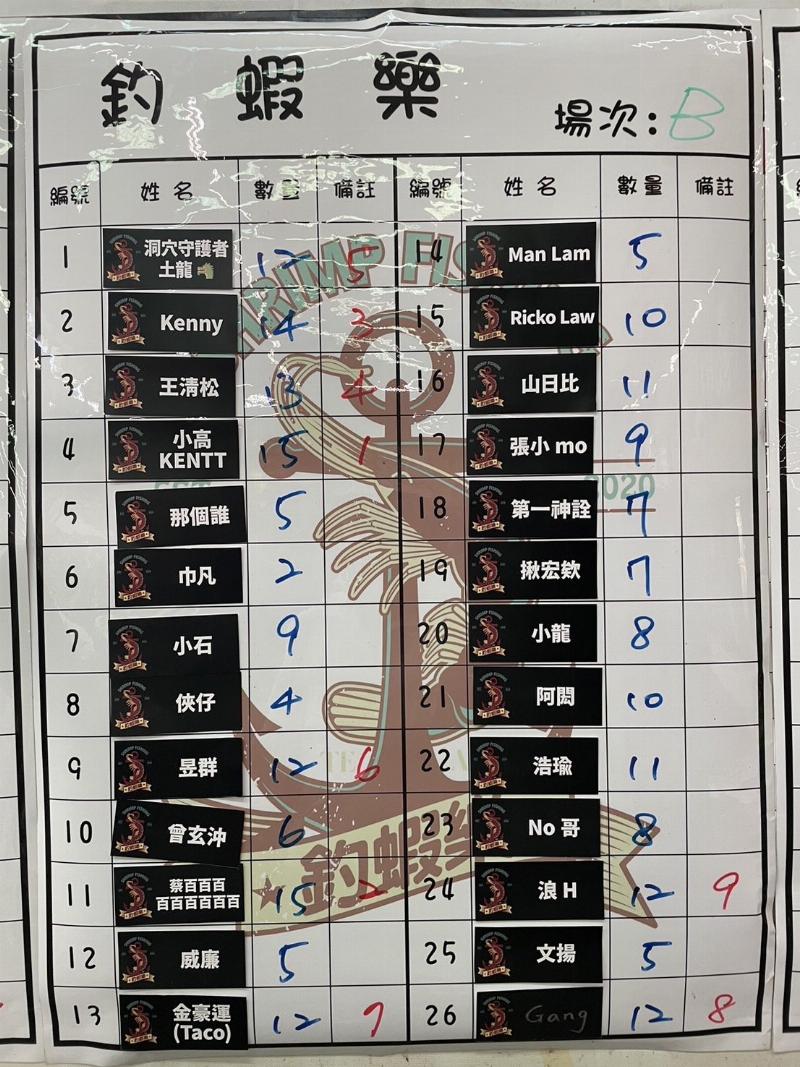 釣蝦樂
場次:B
編號 姓名 數量 備註 編號 姓名 數量 備註
1 洞穴守護者 土龍 12 5 14 Man Lam 5
2 Kenny 14 3 15 Ricko Law 10
3 王清松 13 4 16 山日比 11
4 小高 KENTT 15 1 17 張小 mo 9
5 那個誰 5 18 第一神詮 7
6 巾凡 2 19 揪宏欸 7
7 小石 9 20 小龍 8
8 俠仔 4 21 阿閎 10
9 昱群 12 6 22 浩瑜 11
10 曾玄沖 6 23 No 哥 8
11 蔡百百百 百百百百百百 15 2 24 浪 H 12 9
12 威廉 5 25 文揚 5
13 金豪運 (Taco) 12 7 26 Gang 12 8
2020
釣蝦樂